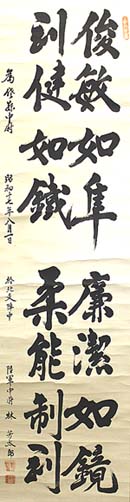 俊敏如隼 廉潔如鏡
剛健如鐵 柔能制剛
昭和十七年八月一日 於北支陣中
陸軍中将 林芳太郎